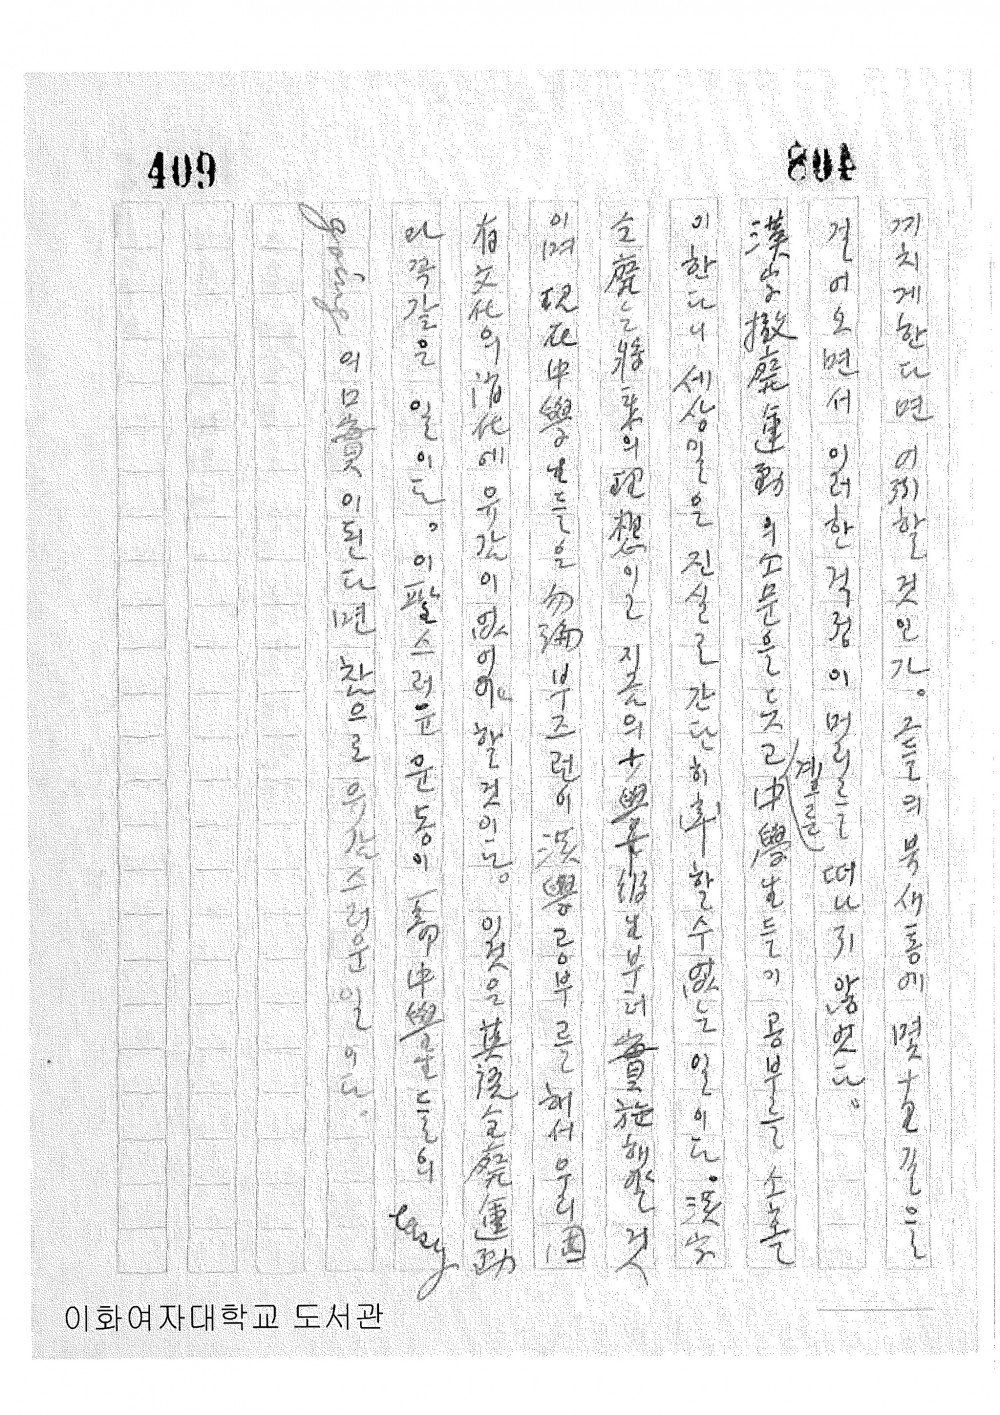 409
804
끼치게한다면 어찌할것인가。 그들의 북새통에 몇十里길을
걸어오면서 이러한 걱정이 머리를 떠나지 않었다。
漢字撤廢運動의소문을듯고 中學生들이 공부를 소홀
계른
이한다니 세상일은 진실로 간단히 할수없는 일이다。漢字
全廢는 將來의理想이고 지금의 부러 實施해야할 것
이며 現在中學生들은 勿論 부즈런이 漢學공부를 해서 우리 固
有文化의 消化에 유감이없어야 할것이다。 이것은 英語全廢運動
과 꼭같은 일이다。 이 스러운 운동이 中學生들의 easy
going 의口實이된다면 참으로 유감스러운일이다。
이화여자대학교 도서관